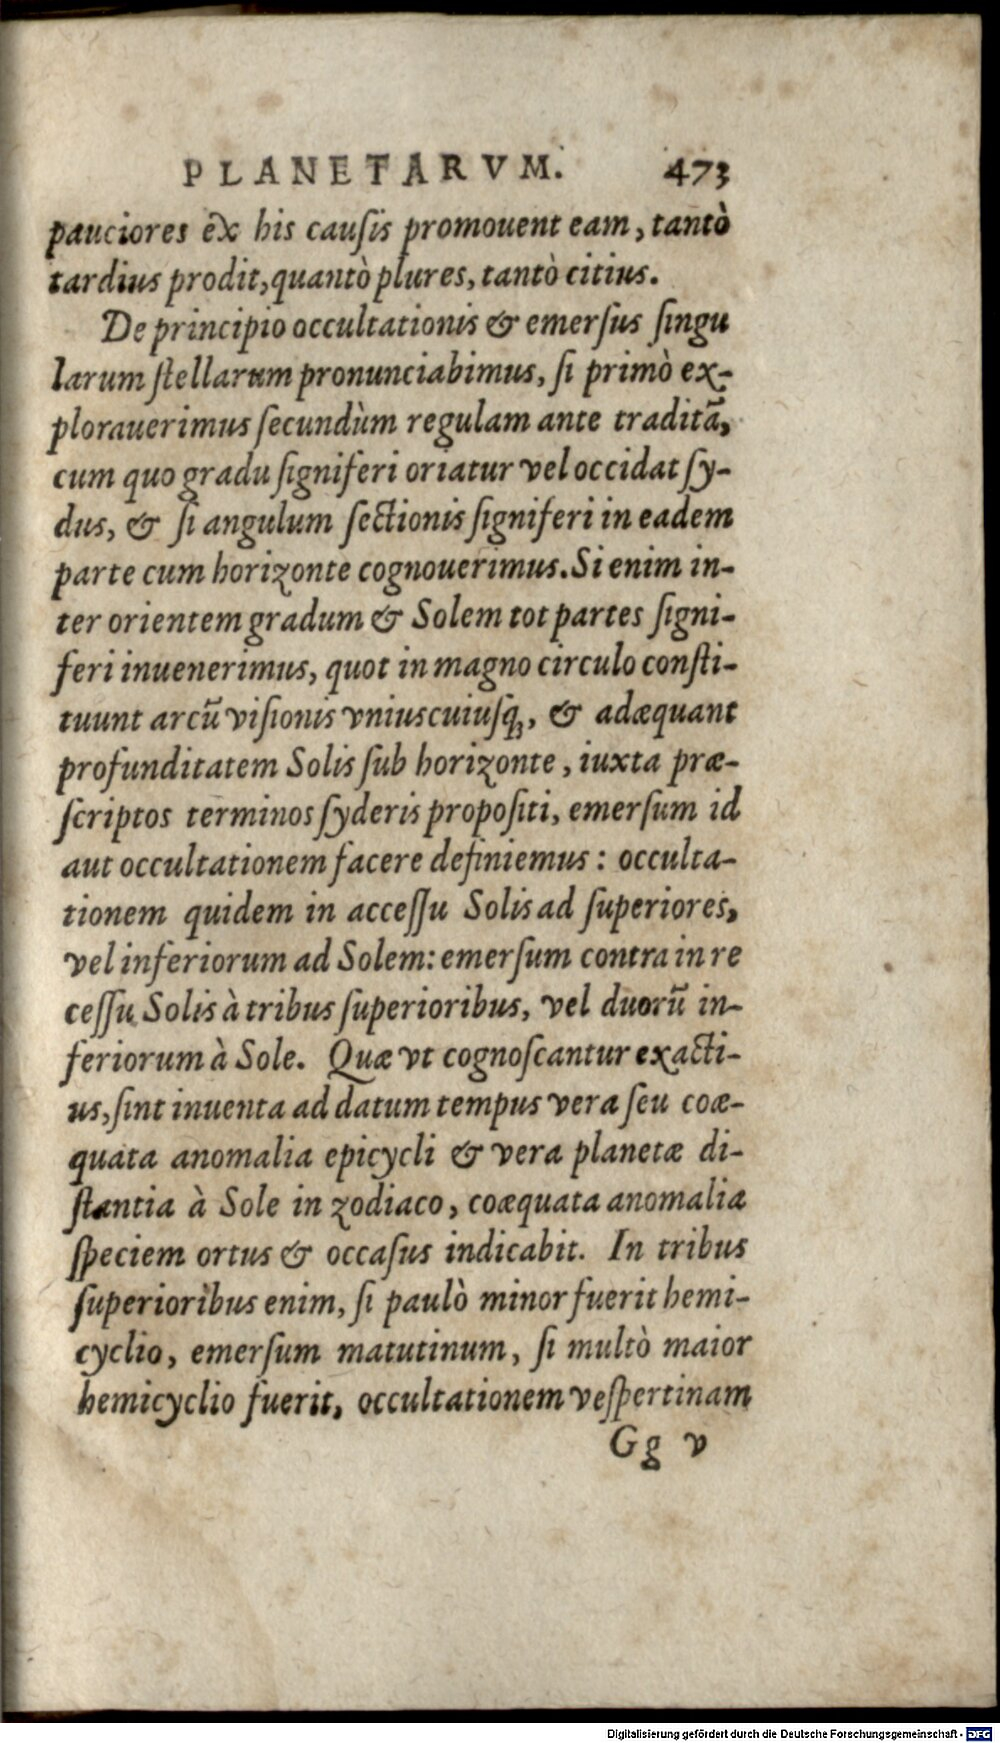 PLANETARVM. 473
pauciores ex his cauſis promouent eam, tantò
tardius prodit, quantò plures, tantò citius.
De principio occultationis & emerſus ſingu
larum ſtellarum pronunciabimus, ſi primò ex-
plorauerimus ſecundùm regulam ante traditã,
cum quo gradu ſigniferi oriatur vel occidat ſy-
dus, & ſi angulum ſectionis ſigniferi in eadem
parte cum horizonte cognouerimus. Si enim in-
ter orientem gradum & Solem tot partes ſigni-
feri inuenerimus, quot in magno circulo conſti-
tuunt arcũ viſionis vniuscuiuſq́;, & adæquant
profunditatem Solis ſub horizonte, iuxta præ-
ſcriptos terminos ſyderis propoſiti, emerſum id
aut occultationem facere definiemus: occulta-
tionem quidem in acceſſu Solis ad ſuperiores,
vel inferiorum ad Solem: emerſum contra in re
ceſſu Solis à tribus ſuperioribus, vel duorũ in-
feriorum à Sole. Quæ vt cognoſcantur exacti-
us, ſint inuenta ad datum tempus vera ſeu coæ-
quata anomalia epicycli & vera planetæ di-
ſtantia à Sole in zodiaco, coæquata anomalia
ſpeciem ortus & occaſus indicabit. In tribus
ſuperioribus enim, ſi paulò minor fuerit hemi-
cyclio, emerſum matutinum, ſi multò maior
hemicyclio fuerit, occultationem veſpertinam
Gg v
Digitalisierung gefördert durch die Deutsche Forschungsgemeinschaft - DFG